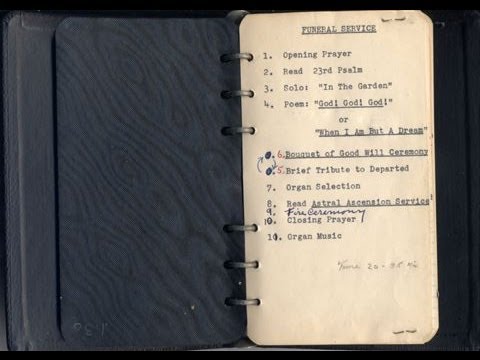 FUNERAL SERVICE
1. Opening Prayer
2. Read 23rd Psalm
3. Solo: "In The Garden"
4. Poem: "God! God! God!"
or
"When I Am But A Dream"
6. Bouquet of Good Will Ceremony
5. Brief Tribute to Departed
7. Organ Selection
8. Read Astral Ascension Service
9. Fire Ceremony
10. Closing Prayer
10. Organ Music